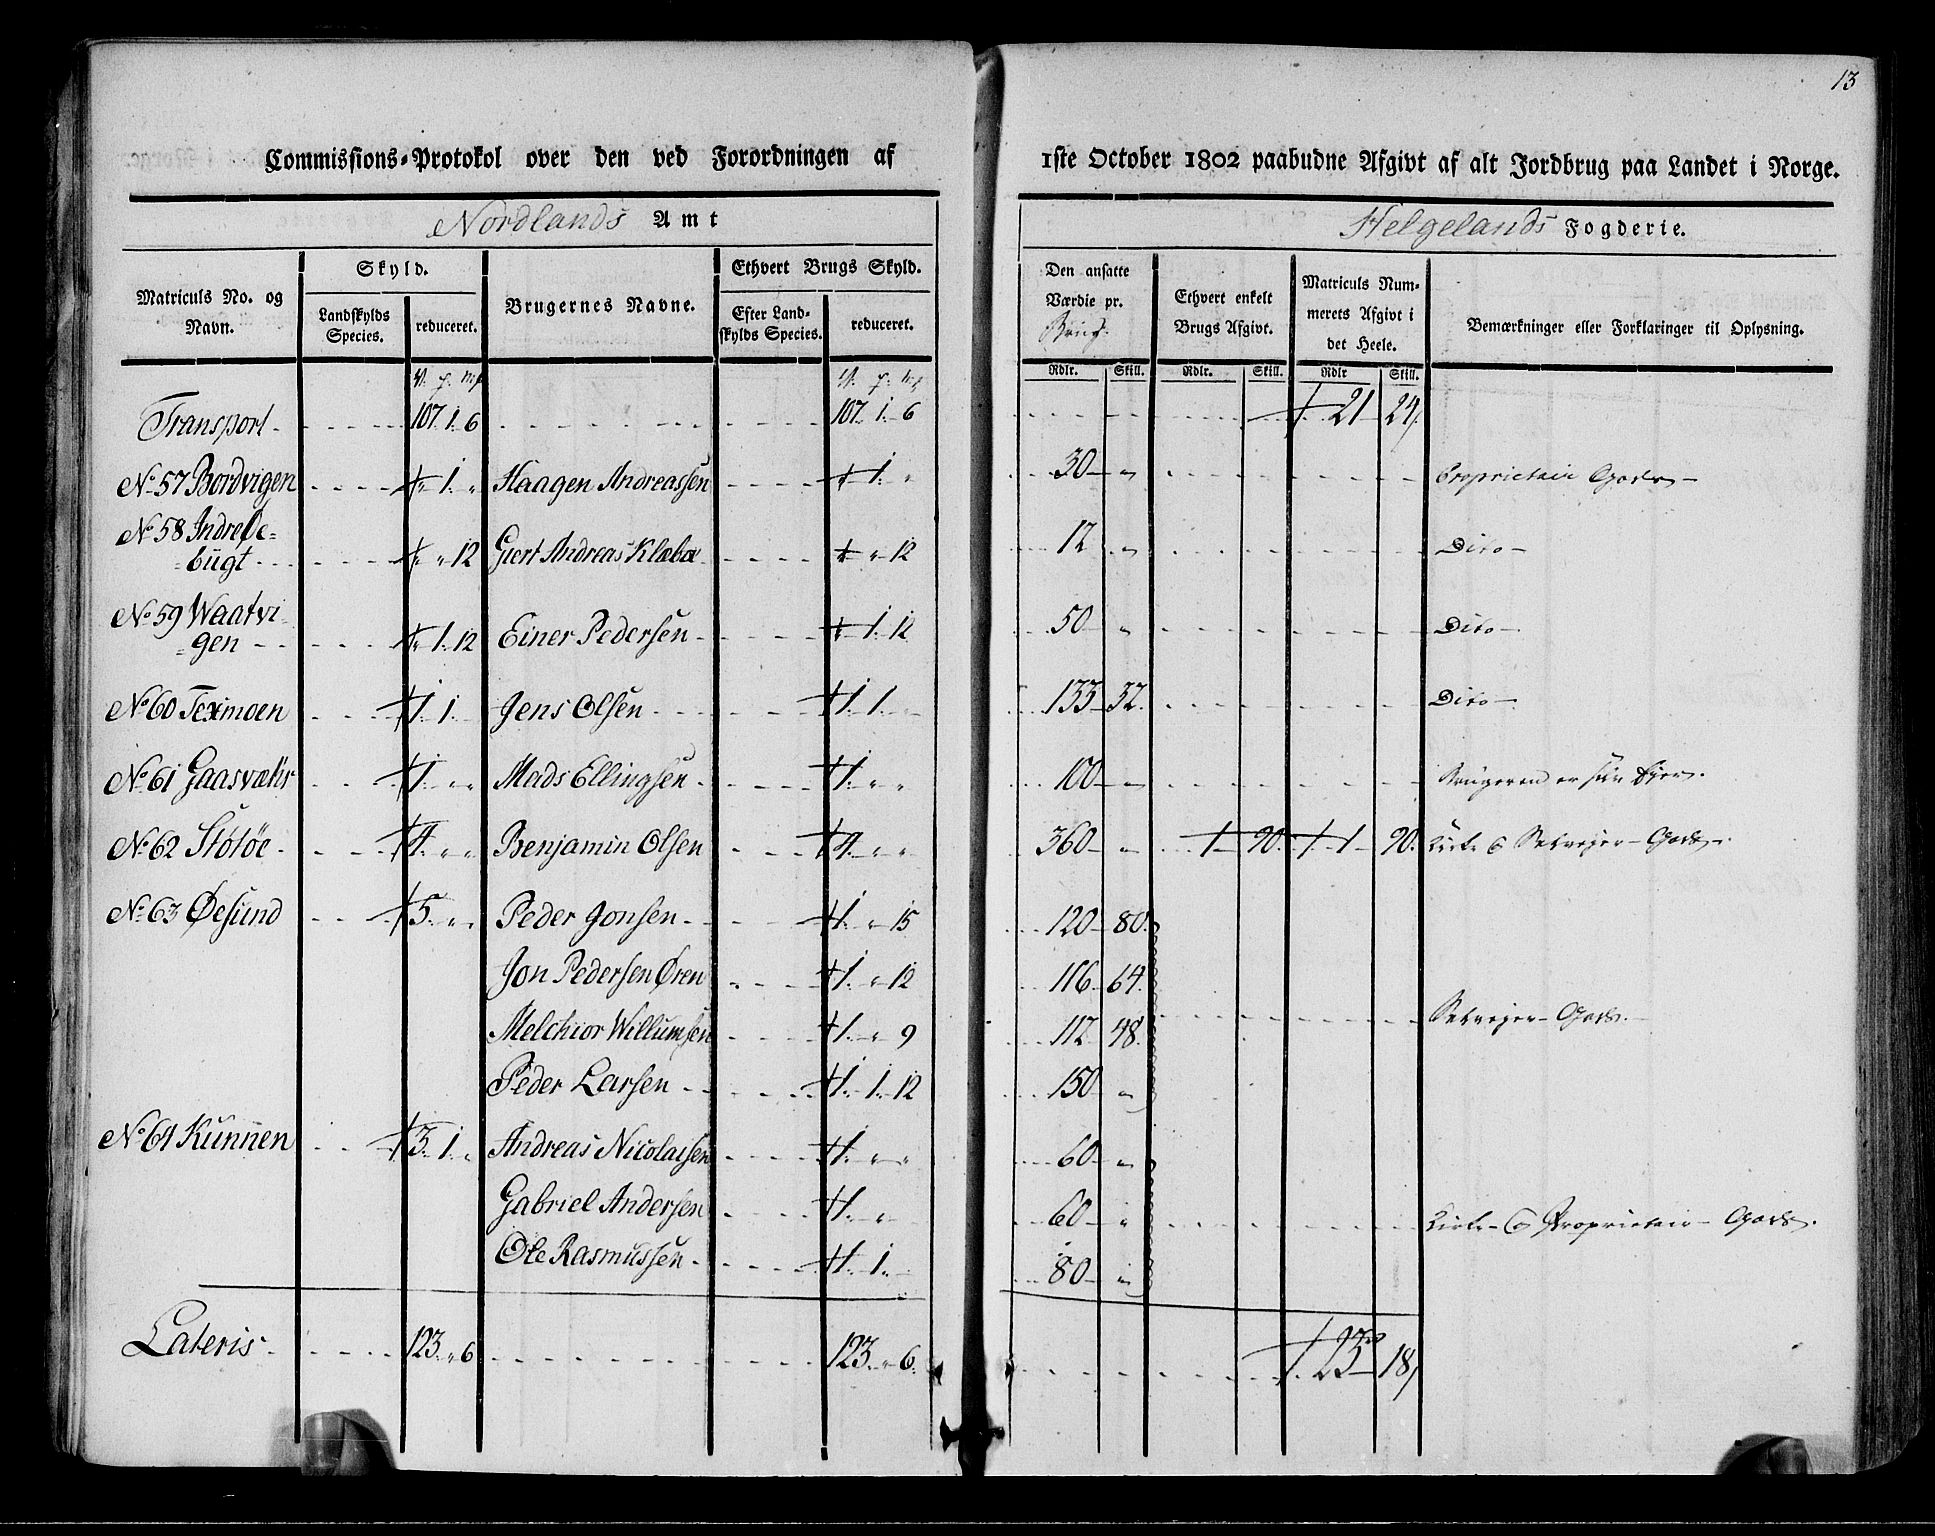 13
Commissions-Protokol over den ved Forordningen af 1ste October 1802 paabudne Afgivt af alt Jordbrug paa Landet i Norge.
Nordlands Amt Helgelands Fogderie.
Matriculs No. og Navn. Skyld. Landskylds Species. reduceret. Brugernes Navne. Ethvert Brugs Skyld. Efter Landskylds Species. reduceret. Den ansatte Værdie pr. Brug. Ethvert enkelt Brugs Afgivt. Matriculs Nummerets Afgivt i det Heele. Bemærkninger eller Forklaringer til Oplysning.
Rdlr. Skill. Rdlr. Skill. Rdlr Skill.
Transport 107. 1. 6 107. 1. 6 21 24
No 57 Bordvigen 1. " Haagen Andreassen 1. " 30 " Proprietair Gods
No 58 Indre
bugt " 12 Giert Andreas Klæboe " 12 12 " Dito
No 59 Waatvi-
gen 1. 12 Einer Pedersen 1. 12 50 " Dito
No 60 Texmoen 1. 1. Jens Olsen 1. 1. 133 32. Dito
No 61 Gaasvæhr 1. " " Mads Ellingsen 1. " " 100 " Brugeren er selv Ejer.
No 62 Stótóe 4. " " Benjamin Olsen 4. " " 360 " 1 90. 1 90. Kirke & Selvejer-Gods.
No 63 Øesund 5. " " Peder Jonsen 1. " 15 120 80.
Jon Pedersen Øren 1. " 12 116 64.
Melchior Willumsen 1. " 9 112 48. Selvejer-Gods.
Peder Larsen 1. 1. 12 150 "
No 64 Kunnen 3. 1. " Andreas Nicolaisen 1. " " 60 "
Gabriel Andersen 1. " 60 " Kirke- & Proprietair-Gods.
Ole Rasmussen 1. 1. 80 "
Lateris 123. " 6 123. " 6. 23 18